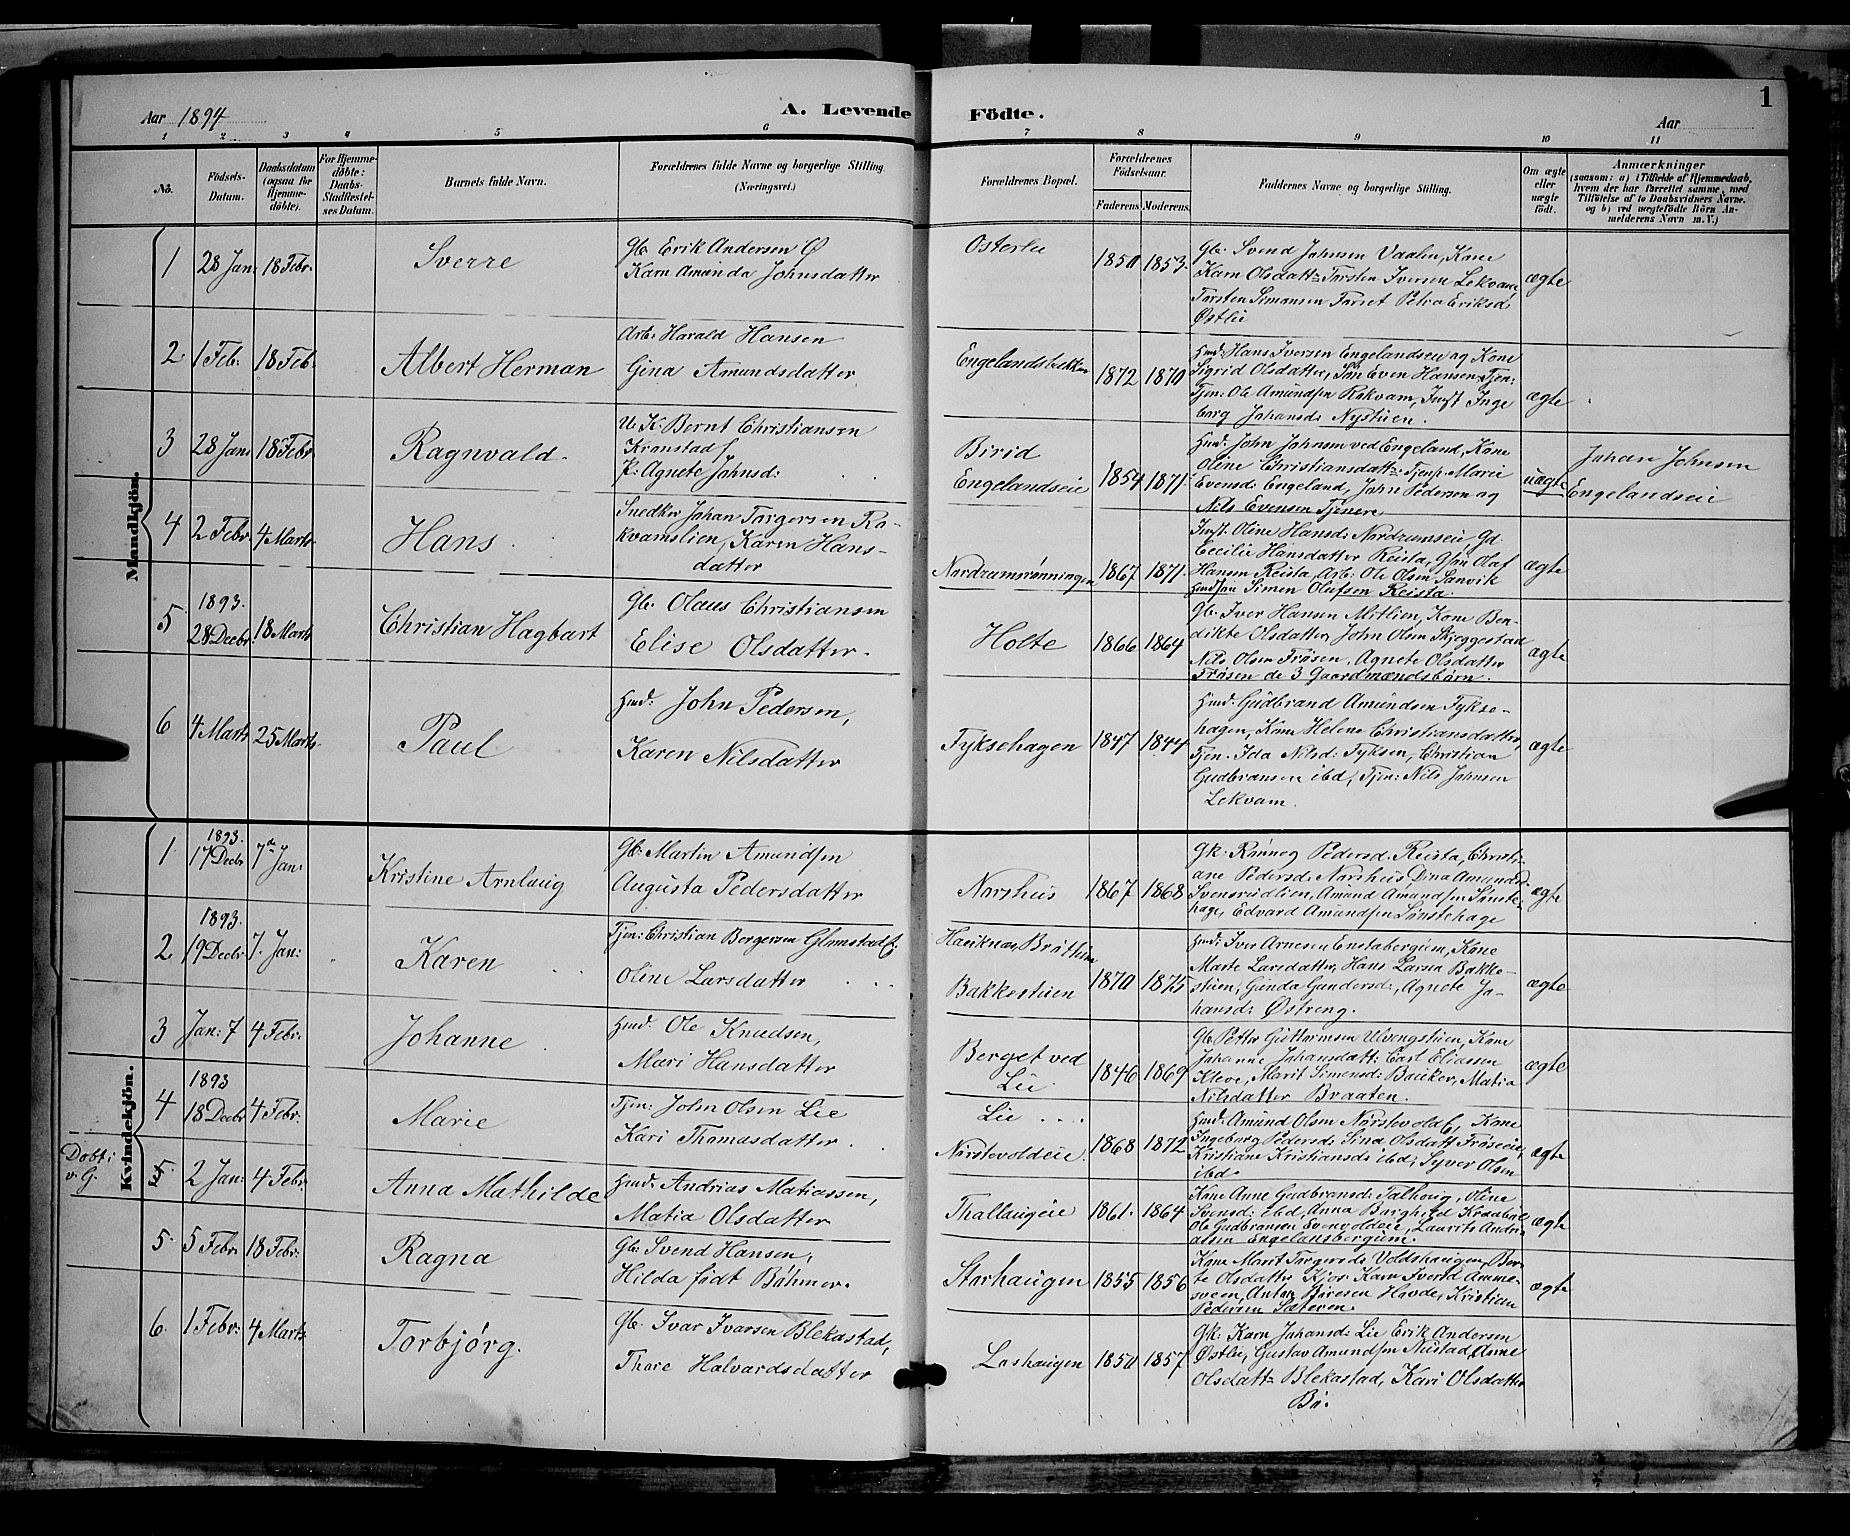 Aar 1894
A. Levende Födte.
Aar
1
1 2 3 4 5 6 7 8 9 10 11
No.
Födsels-Datum.
Daabsdatum (ogsaa for Hjemme-döbte).
For Hjemme-döbte: Daabs-Stadfæstel-ses Datum.
Barnets fulde Navn.
Forældrenes fulde Navne og borgerlige Stilling.
(Næringsvei.)
Forældrenes Bopæl.
Forældrenes Födselsaar.
Faderens. Moderens.
Faddernes Navne og borgerlige Stilling.
Om ægte eller uægte födt.
Anmærkninger
(saasom: a) i Tilfælde af Hjemmedaab, hvem der har forrettet samme, med Tilföielse af to Daabsvidners Navne. og b) ved uægtefödte Börn An-melderens Navn m. V.)
Mandkjön.
1 28 Jan: 18 Febr. Sverre
Gb. Erik Andersen Ø
Karn Amanda Johnsdatter
Østerlie 1850 1853
Gb: Svend Johnsen Vaalin, Kone
Karn Olsdatt: Torsten Iversen Lekvam
Torsten Simonsen Torset Petra Eriksd:
Østlie
ægte
2 1 Feb: 18 Feb. Albert Herman
Arb: Harald Hansen
Gina Amundsdatter
Engelandsbakken 1872 1870
Hmd: Hans Iversen Engelandseie og Kone
Sigrid Olsdatter, Søn Even Hansen Tjen:
Tjen: Ole Amundsen Rokvam, Inst Inge
borg Johansd: Nystuen.
ægte
3 28 Jan: 18 Febr Ragnvald.
U. K. Bernt Christiansen
Kronstad f
P: Agnete Johnsd:
Birid
Engelandseie 1854 1871
Hmd. John Johnsen ved Engeland, Kone
Oline Christiansdatt: Tjenp. Marie
Evensd: Engeland, John Pedersen og
Nils Evensen Tjenere
uægte
Johan Johnsen
Engelandseie
4 2 Febr. 4 Marts Hans
Snedker Johan Torgersen Ro-
kvamslien, Karen Hans-
datter
Nordrumsrønningen 1867 1871
Inst. Oline Hansd: Nordrumseie Gd.
Cecilie Hansdatter Reista, Gsøn Olaf
Hansen Reista, Arb: Ole Olsen Sanvik
Hmdsøn Simen Olufsen Reista.
ægte
5 1893. 28 Decbr. 18 Marts Christian Hagbart
Gb. Olaus Christiansen
Elise Olsdatter.
Holte 1866 1864
Gb. Iver Hansen Mitlien, Kone Ben-
dikte Olsdatter, John Olsen Skjeggestad
Nils Olsen Frøsen, Agnete Olsdatter
Frøsen de 3 Gaardmændsbørn.
ægte
6 4 Marts 25 Marts Paul
Hmd. John Pedersen,
Karen Nilsdatter
Tyksehagen 1847 1844
Hmd. Gudbrand Amundsen Tykse-
hagen, Kone Helene Christiansdatter,
Tjen. Ida Nilsd: Tyksen, Christian
Gudbransen ibd, Tjen: Nils Johnsen
Lekvam.
ægte
Kvindekjön.
1 1893. 17 Decbr 7de Jan: Kristine Arnlaug
Gb: Martin Amundsen
Augusta Pedersdatter
Norshus 1867 1868
Gk: Rønneg Pedersd. Reista, Christi-
ane Pedersd: Norshus Dina Amundsd.
Svensrudlien, Amund Amundsen Sønste-
hage, Edvard Amundsen Sønstehage
ægte
2 1893. 19 Decbr. 7. Jan: Karen
Tjen: Christian Borgersen Glemstad f.
Oline Larsdatter
Bakkestuen 1870 1875
Hmd: Iver Arnesen Enstabergum, Kone
Marte Larsdatter, Hans Larsen Bakke-
stuen, Gunda Gundersd:, Agnete Jo-
hansd: Østreng.
ægte
3 Jan: 7 4 Febr. Johanne
Hmd. Ole Knudsen,
Mari Hansdatter
Berget ved
Lie. 1846 1869
Gb. Petter Guttormsen Ulvengstuen, Kone
Johanne Johansdatt: Carl Eliassen
Kleve, Marit Simensd: Bauker, Matia
Nilsdatter Braaten.
ægte
4 1893 18 Decbr 4 Febr. Marie
Tjen: John Olsen Lie
Kari Thomasdatter.
Lie
Norstevoldeie 1868 1872
Hmd. Amund Olsen Norstevold f, Kone
Ingeborg Pedersd: Sina Olsdatt Frøseie,
Kristiane Kristiansd: ibd; Syver Olsen
ibd.
ægte
Døbt i
v. G.
2 Jan: 4 Febr. Anna Mathilde
Hmd: Andrias Matiassen,
Matia Olsdatter
Thallaugeie 1861. 1864
Kone Anne Gudbransd: Talhoug, Oline
Svensd: ibd, Anna Borghild Kraabøl
Ole Gudbransen Svenvoldeie, Laurits Andri-
asen Engelansbergum.
ægte
5 5 Febr 18 Febr. Ragna
Gb: Svend Hansen,
Hilda født Bøhmer.
Storhaugen 1855 1856
Kone Marit Torgersd: Voldshaugen, Ber-
te Olsdatter Kjos, Karn Iversd Ammo-
sveen, Anton Høvde, Kristian
Pedersen Sæteren.
ægte
6. 1 Febr: 4 Marts Torbjørg.
Gb. Ivar Ivarsen Blekastad,
Thore Halvardsdatter
Loshaugen 1850 1857
Gk: Karn Johansd: Lie Erik Andersen
Østlie, Gustav Amundsen Nustad, Anne
Olsdatt: Blekastad, Kari Olsdatter
Bø.